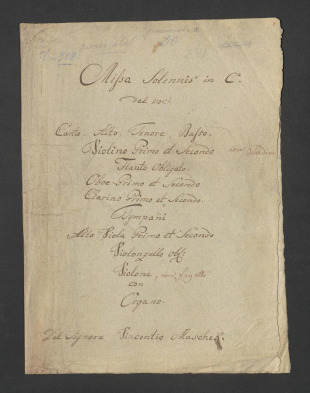 Missa Solennis in C.
Canto. Alto. Tenore. Basso.
Violino Primo et Secondo
Flauto Obligato.
Oboe Primo et Secondo
Clarino Primo et Secondo.
Tympani
Alto Viola Primo et Secondo
Violonzello
Violone,
con
Organo.
Del Signore Vincentio Maschek.